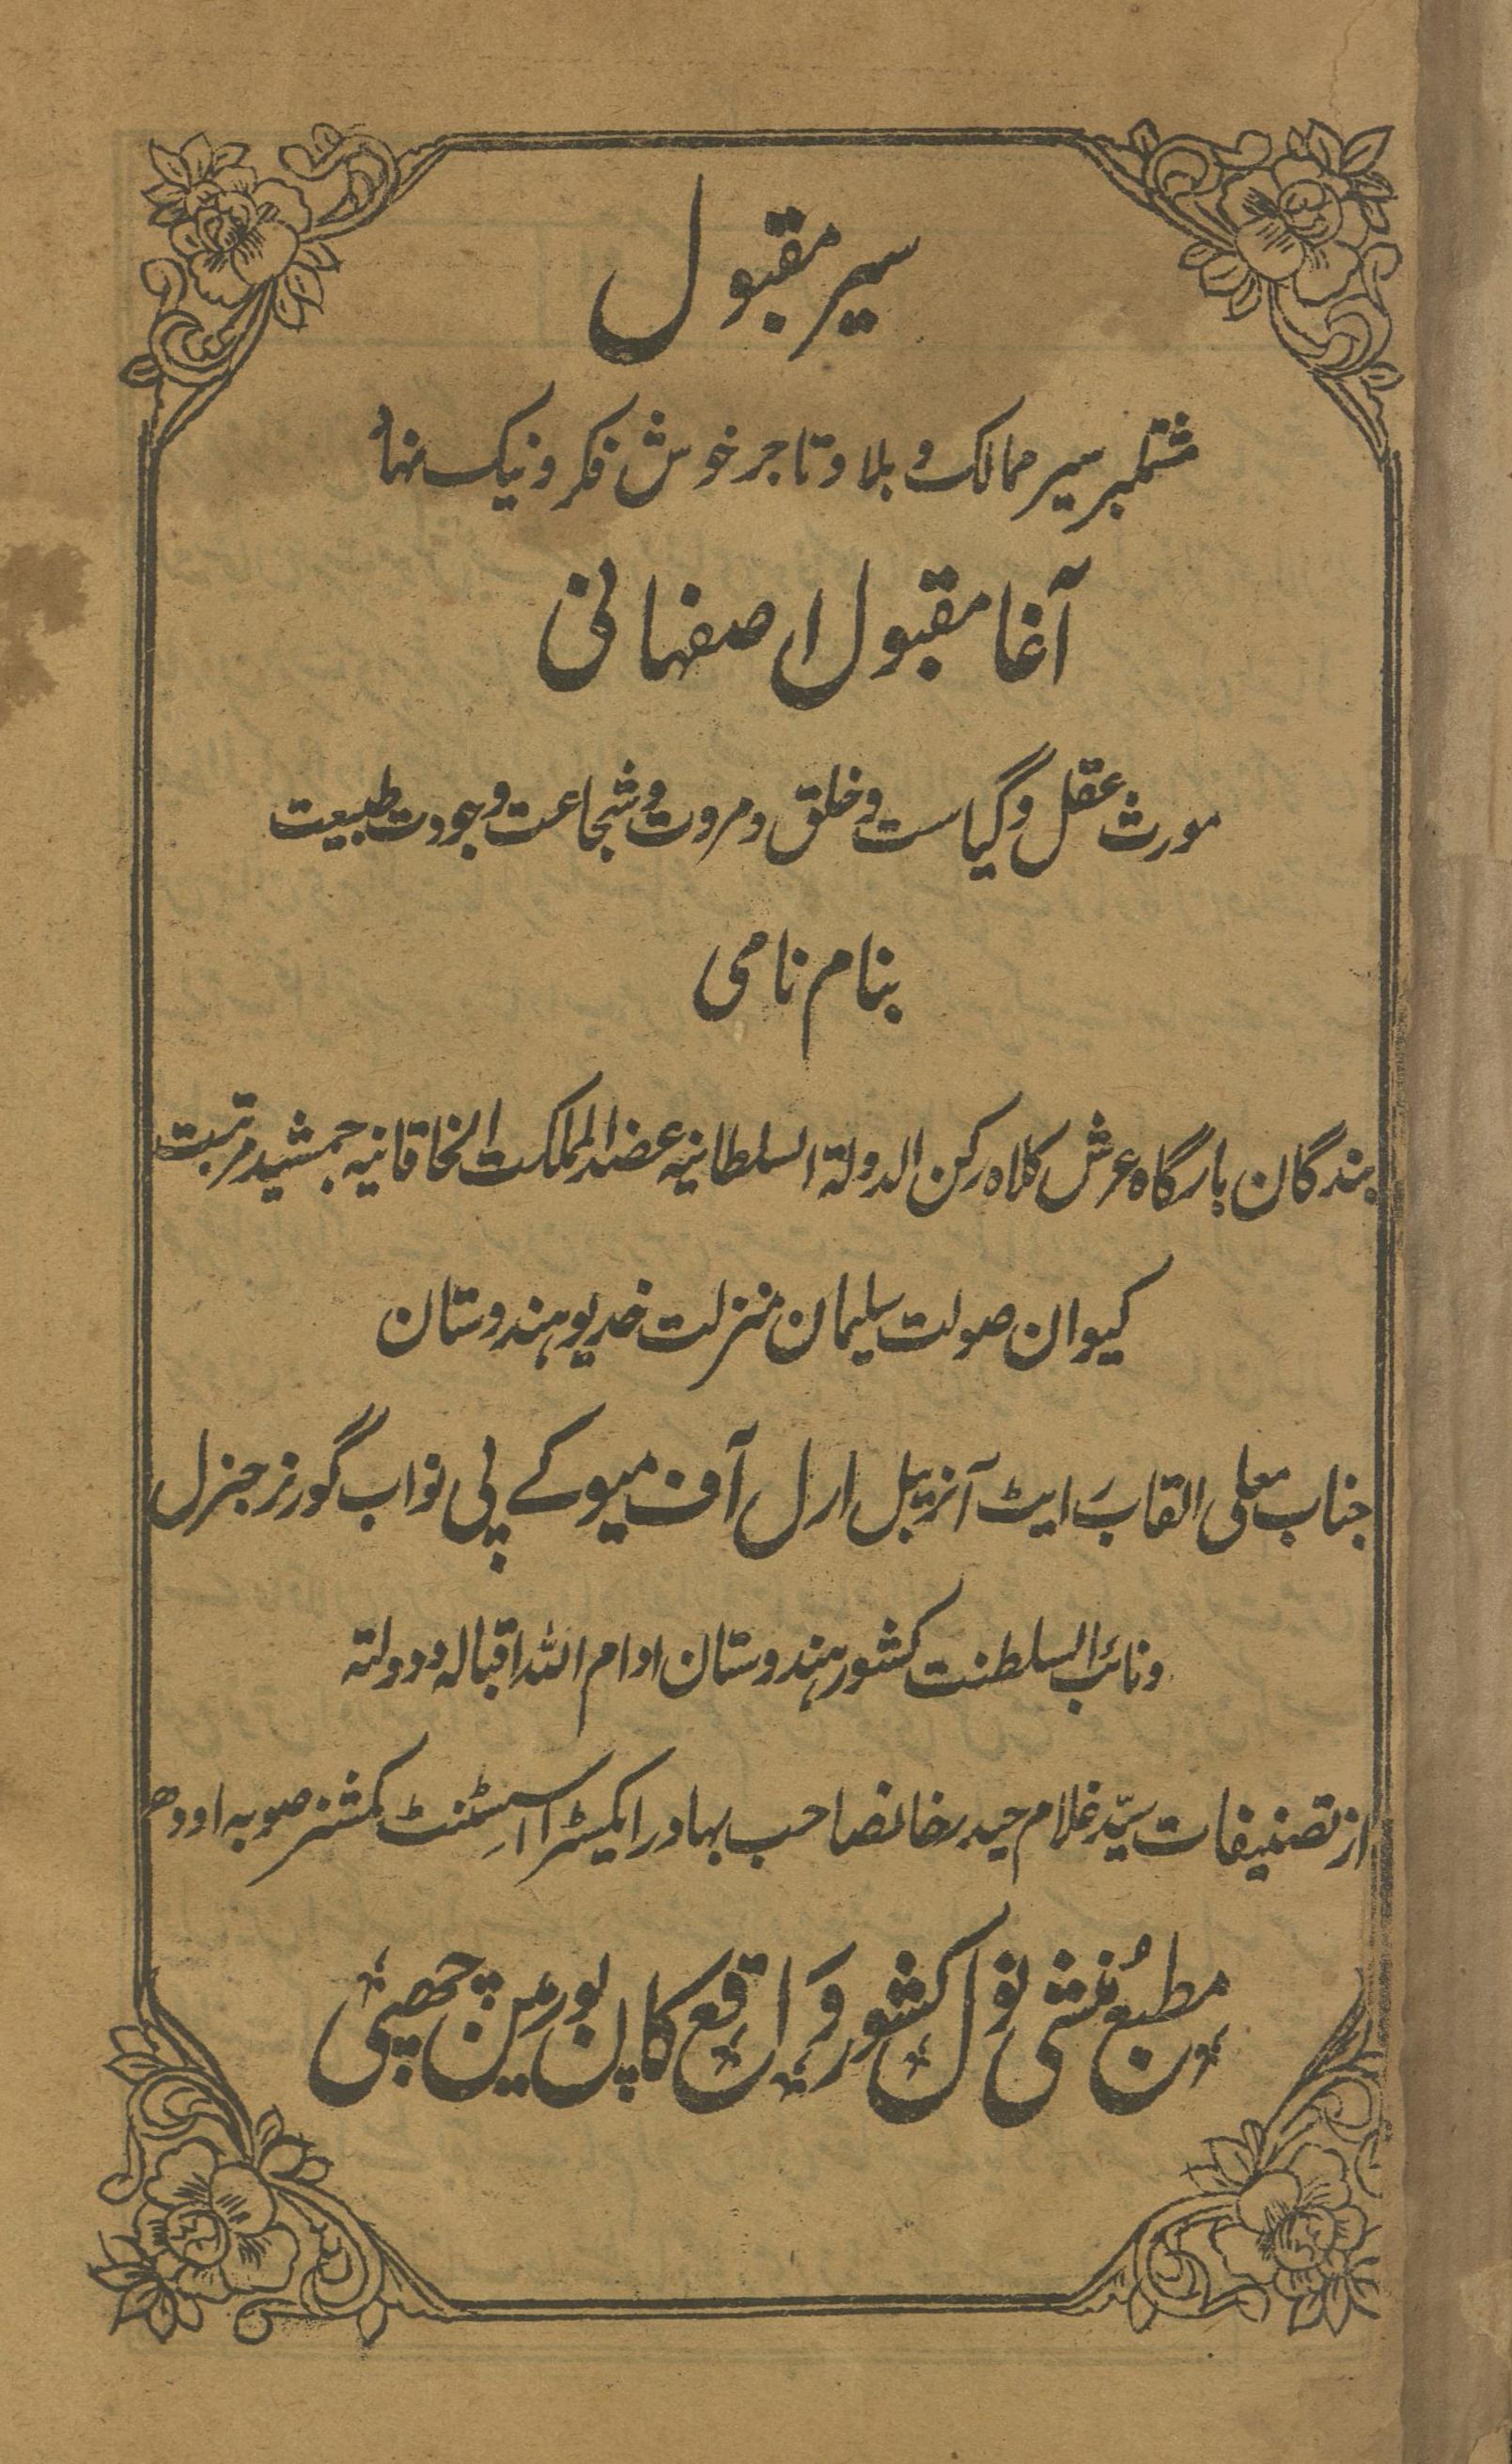 سیر مقبول
مشتملبر سیر ممالک و بلاد تاجر خوش فکر و نیک نہاد
آغا مقبول اصفہانی
مورث عقل و گیاست و خلق و مروت و شجاعت و جودت طبیعت
بنام نامی
بندگان بارگاہ عرش کلاہ رکن الدولۃ السلطانیہ عضد المملکت الخاقانیہ جمشید مرتبت
کیوان صولت سلیمان منزلت خدیو ہندوستان
جناب معلی القاب رایٹ آنریبل ارل آف میو کے پی نواب گورنر جنرل
و نائب السلطنت کشور ہندوستان ادام اللہ اقبالہ و دولتہ
از تصنیفات سیّد غلام حیدر خانصاحب بہادر ایکسٹرا اسسٹنٹ کمشنر صوبہ اودھ
مطبع منشی نول کشور واقع کانپور مین چھپی